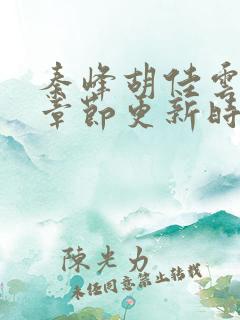 秦峰胡佳雲
章節更新時
陳光力
未經同意禁止轉載